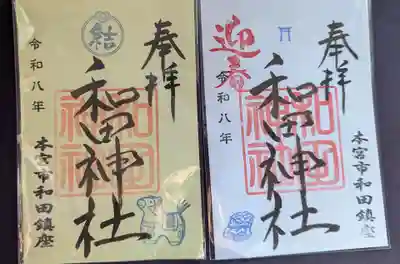 奉拝
結
和田神社
和田神社
令和八年
本宮市和田鎮座
奉拝
迎春
和田神社
和田神社
令和八年
本宮市和田鎮座